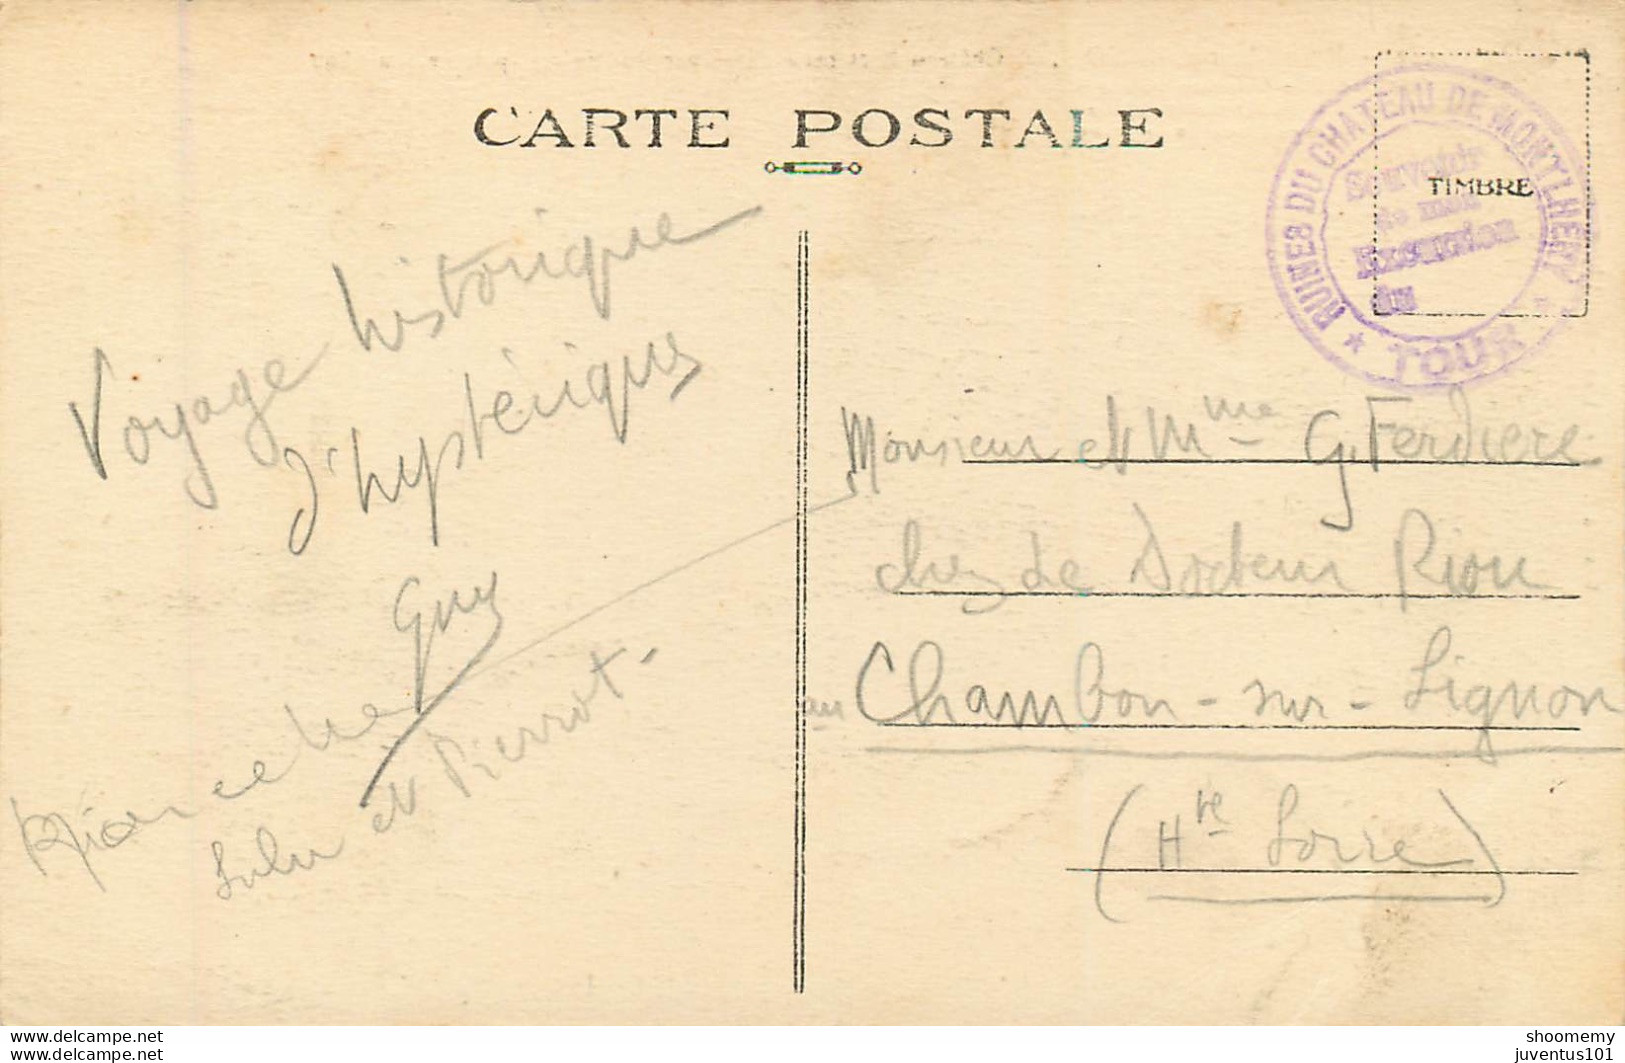 CARTE POSTALE
RUINES DU CHATEAU DE MONTLHERY
TOUR
Souvenir
de mon
Excursion
du
TIMBRE
Voyage historique
d'hystériques
Guy
Lulu et Pierrot-
Monsieur et Mme G Ferdiere
chez Le Docteur Riou
au Chambon-sur-Lignon
(Hte Loire)
www.delcampe.net
www.delcampe.net
shoomemy
juventus101